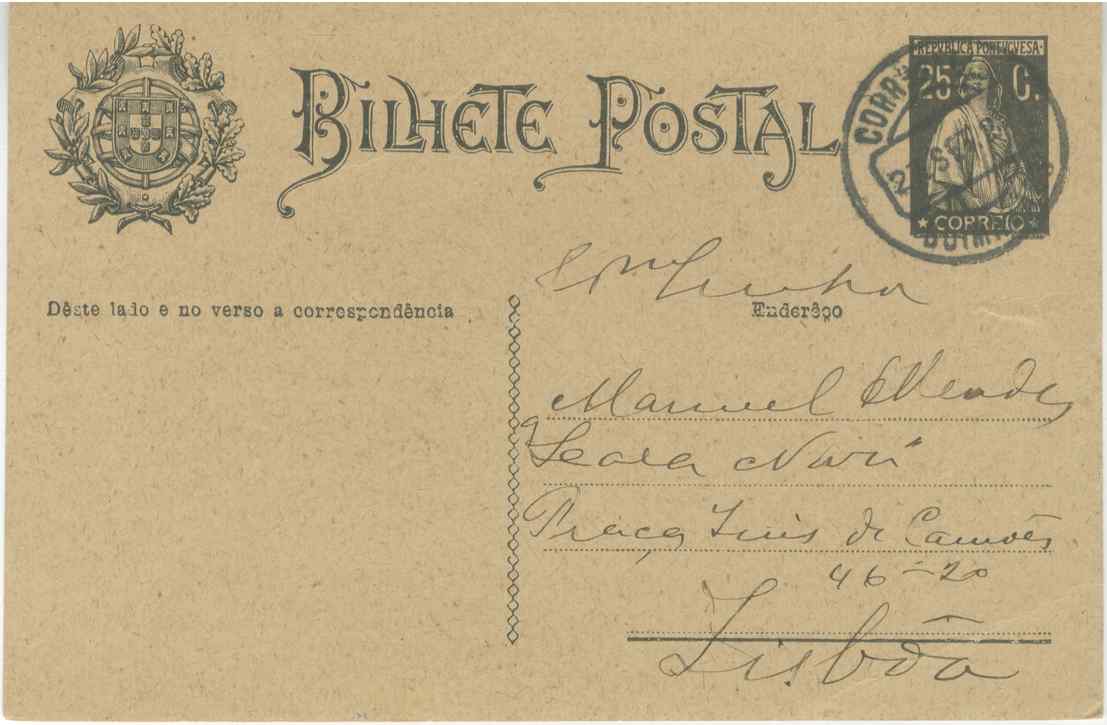 BILHETE POSTAL
REPVBLICA PORTVGVESA
25 C.
CORREIO
Dêste lado e no verso a correspondência
Enderêço
Manuel Mendes
"Seara Nova"
Praça Luis de Camões
46-2º
Lisbôa